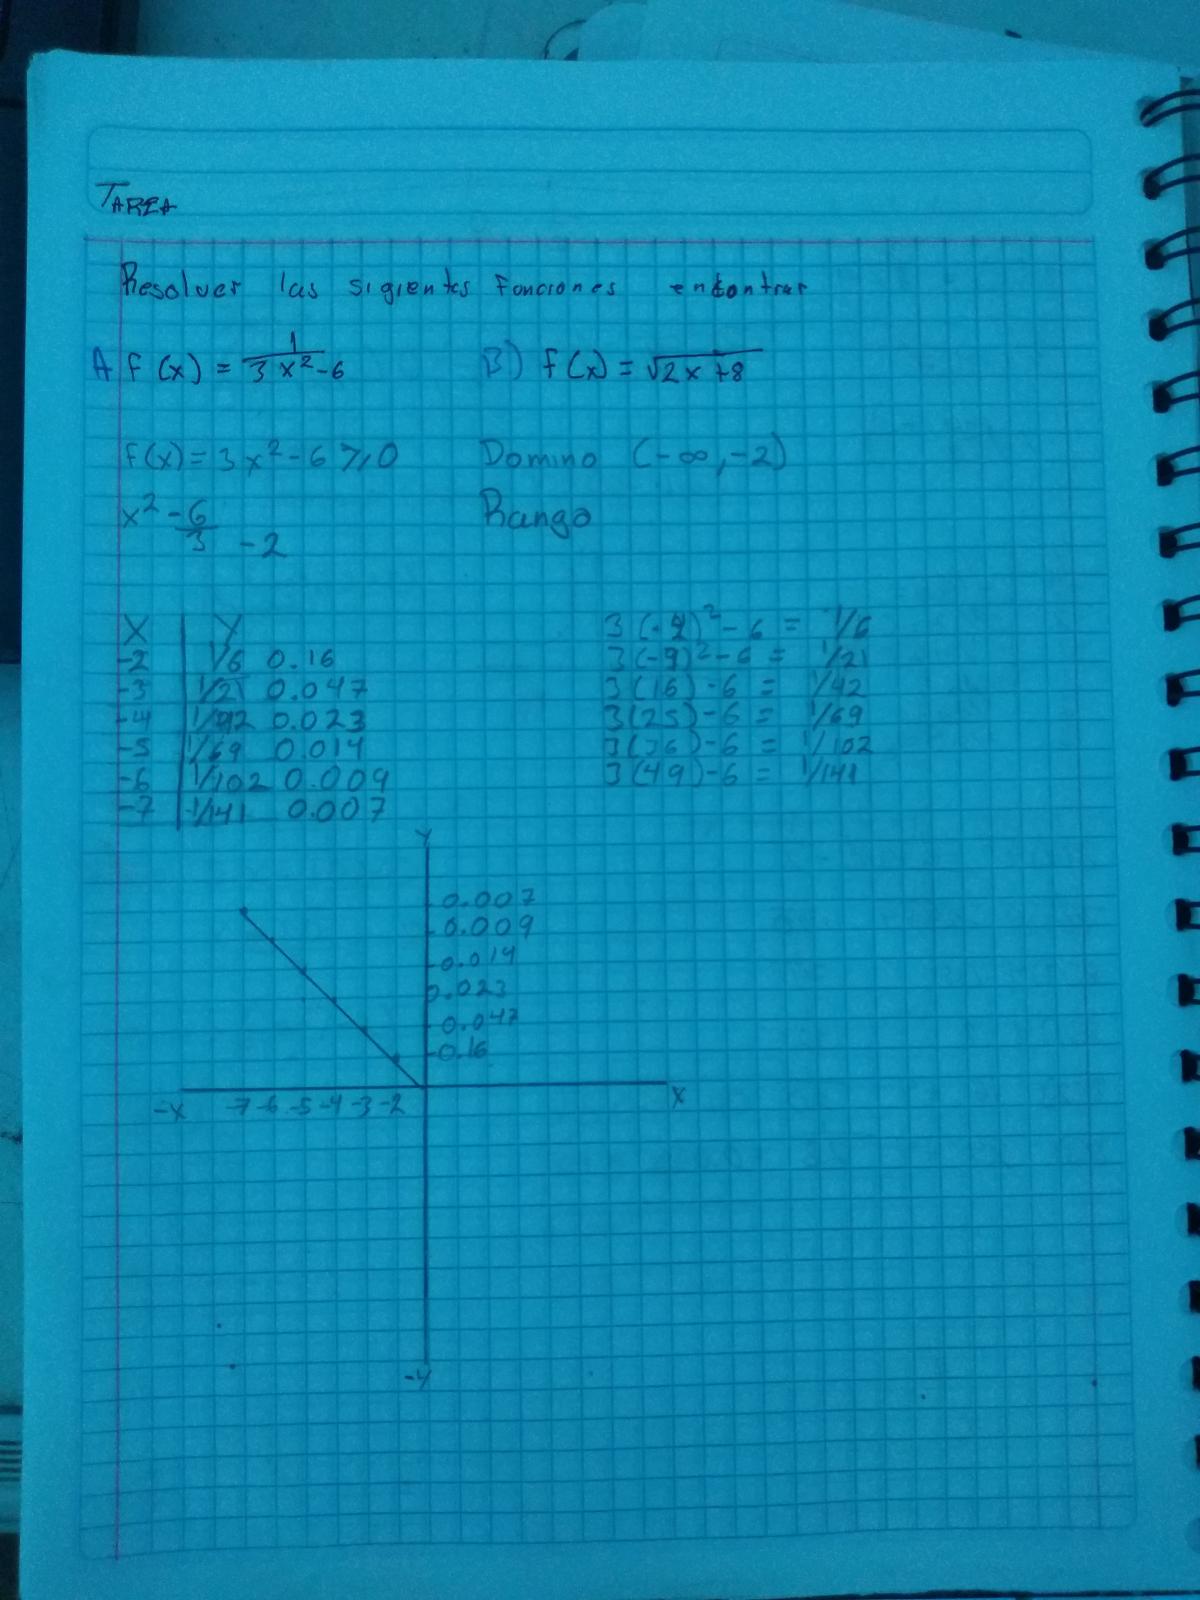 TAREA
Resolver las sigientes Fonciones encontrar
A f(x) = 1/3x²-6 B) f(x) = √2x+8
f(x) = 3x²-6 ≥ 0 Domino (-∞,-2)
x² - 6/3 -2 Rango
X Y 3(-2)²-6 = 1/6
-2 1/6 0.16 3(-9)²-6 = 1/21
-3 1/21 0.047 3(16)-6 = 1/42
-4 1/42 0.023 3(25)-6 = 1/69
-5 1/69 0.014 3(36)-6 = 1/102
-6 1/102 0.009 3(49)-6 = 1/141
-7 1/141 0.007
Y
0.007
0.009
0.014
0.023
0.047
0.16
-X -7 -6 -5 -4 -3 -2 X
-Y